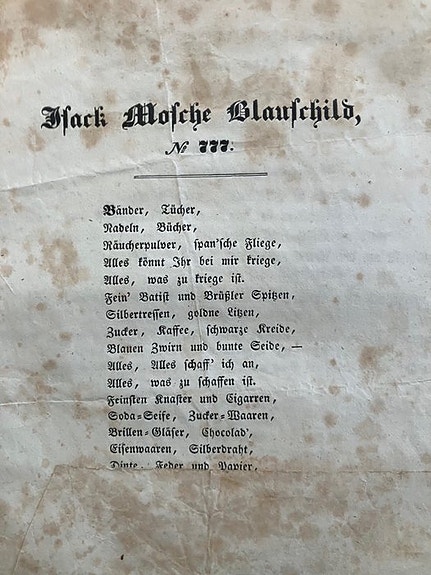 Isack Mosche Blauschild,
No 777.
Bänder, Tücher,
Nadeln, Bücher,
Räucherpulver, span'sche Fliege,
Alles könnt Ihr bei mir kriege,
Alles, was zu kriege ist.
Fein' Batist und Brüßler Spitzen,
Silbertressen, goldne Litzen,
Zucker, Kaffee, schwarze Kreide,
Blauen Zwirn und bunte Seide, —
Alles, Alles schaff' ich an,
Alles, was zu schaffen ist.
Feinsten Knaster und Cigarren,
Soda-Seife, Zucker-Waaren,
Brillen-Gläser, Chocolad',
Eisenwaaren, Silberdraht,
Dinte, Feder und Papier,